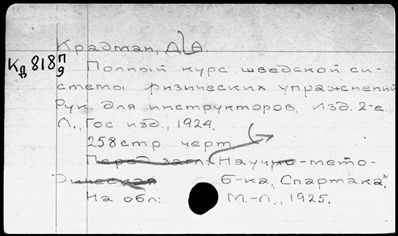 Крадман, Д. А
Кд 818 п/9
Полный курс шведской си-
стемы физических упражнений
Рук. для инструкторов. Изд. 2-е.
Л., Гос изд., 1924.
258 стр черт
Перед загл: Научно-мето-
дическая б-ка, Спартака".
На обл: М.-Л., 1925.